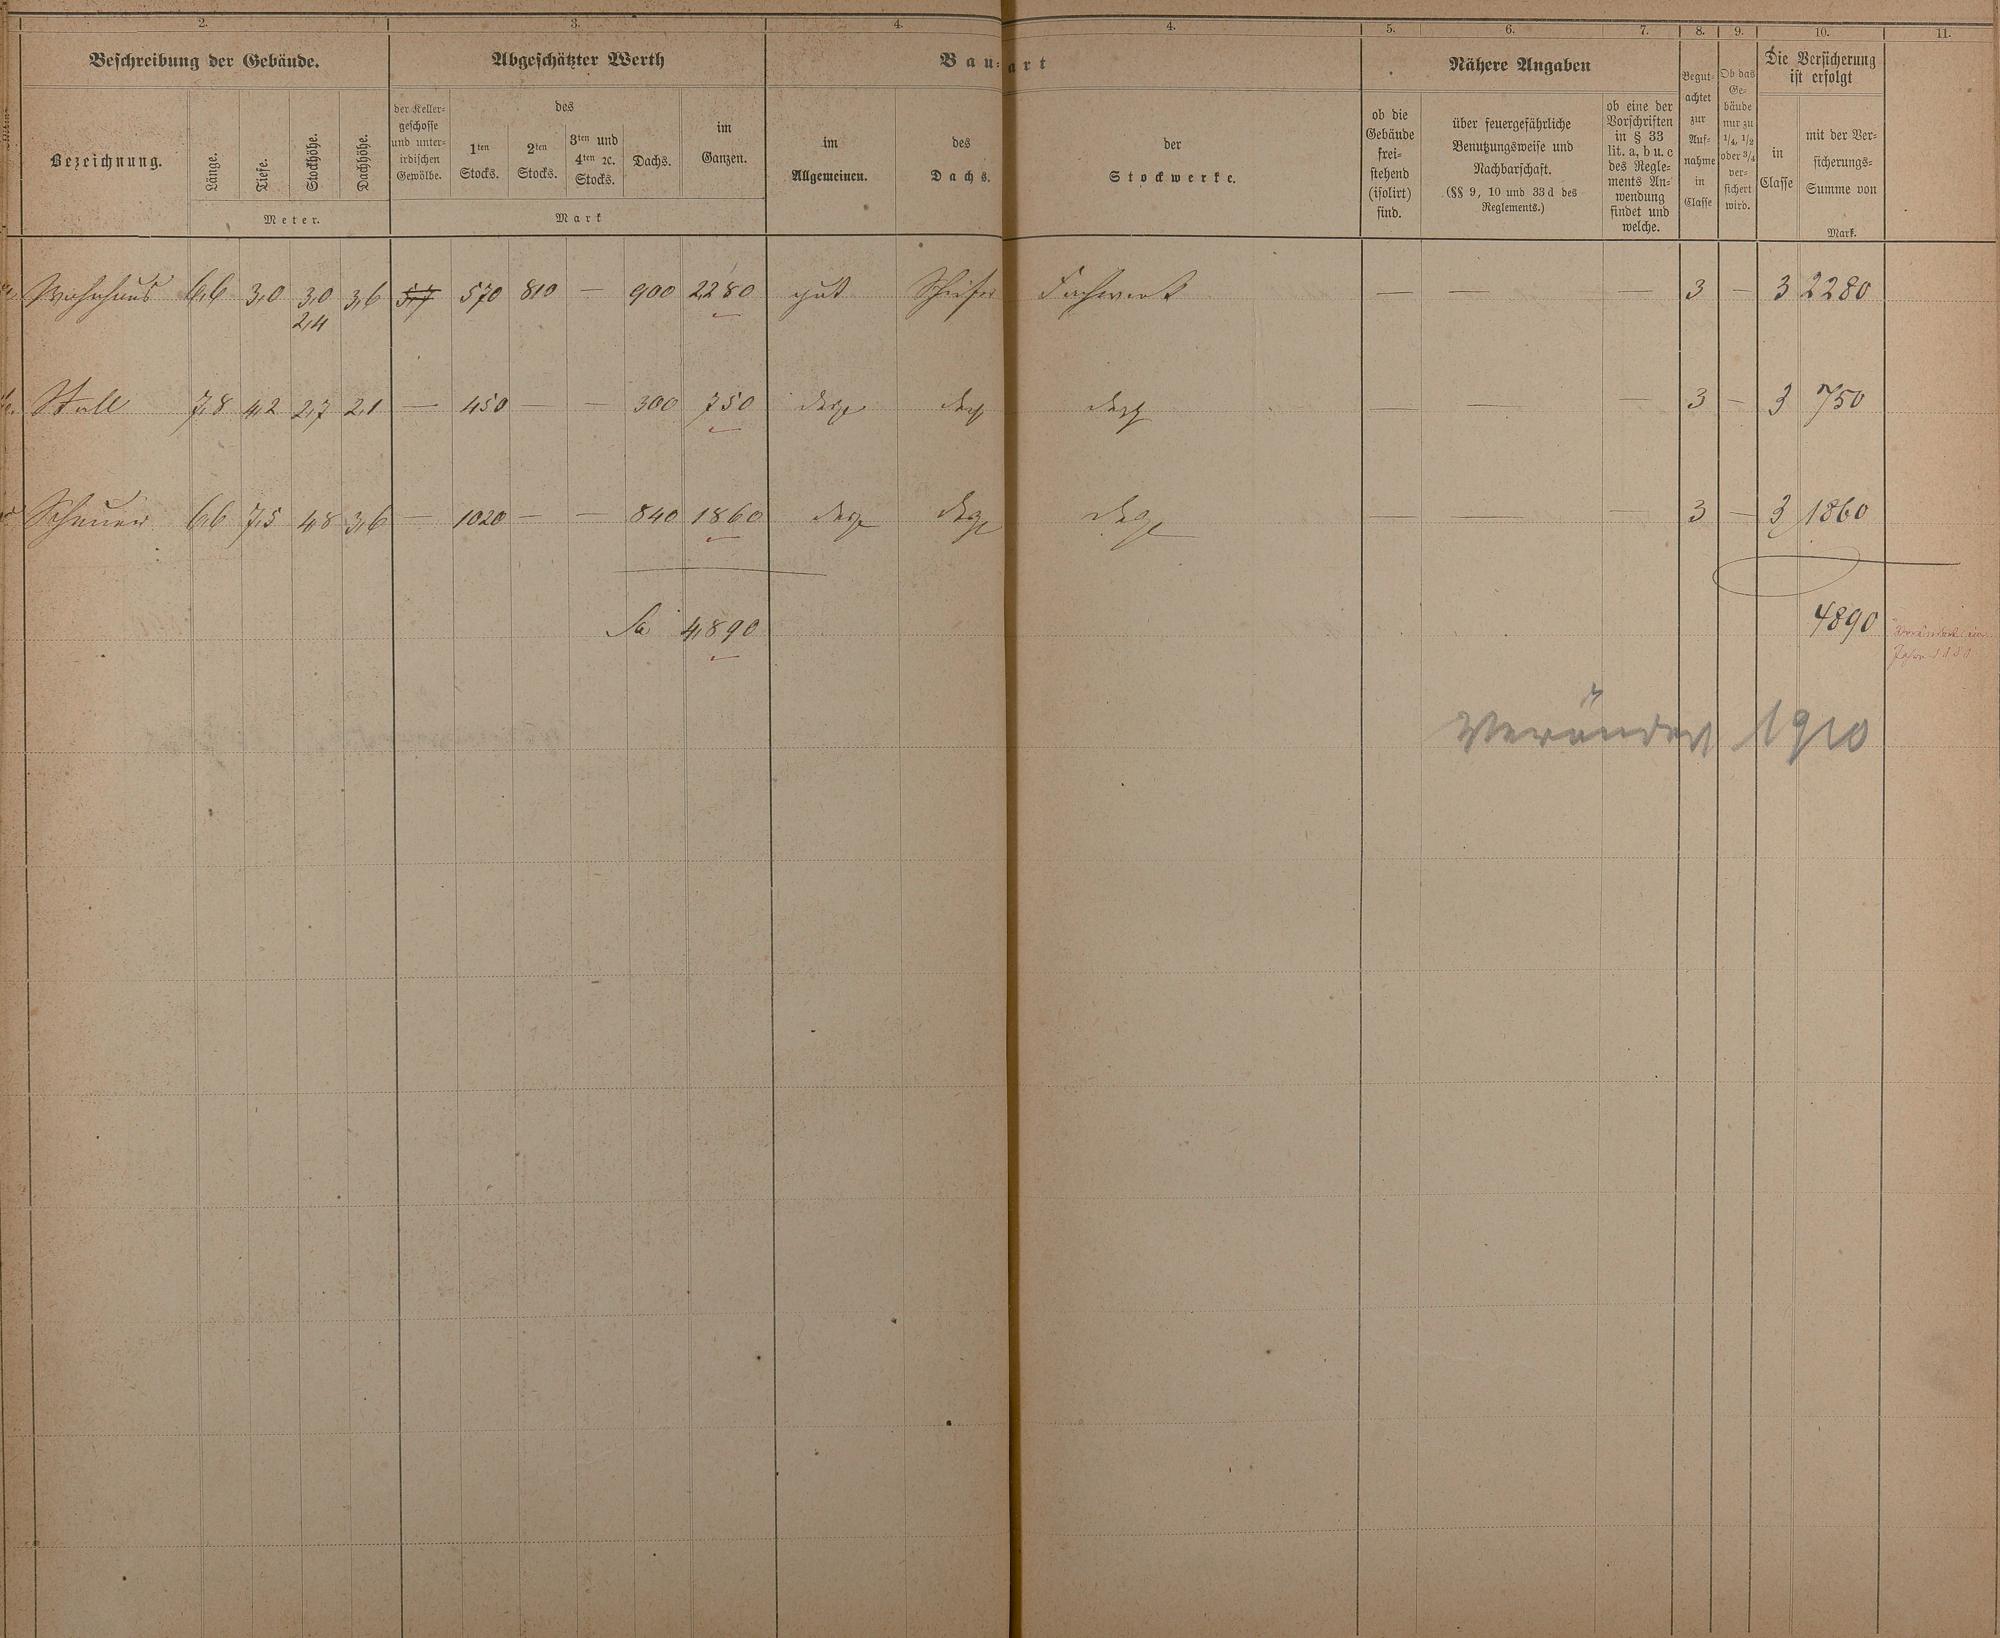 2. 3. 4. 4. 5. 6. 7. 8. 9. 10. 11.
Beschreibung der Gebäude. Abgeschätzter Werth Bau- art Nähere Angaben
Bezeichnung.
Länge.
Tiefe.
Stockhöhe.
Dachhöhe.
Meter.
der Keller-
geschosse
und unter-
irdischen
Gewölbe.
des
1ten
Stocks.
2ten
Stocks.
3ten und
4ten ꝛc.
Stocks.
Dachs.
im
Ganzen.
Mark
im
Allgemeinen.
des
Dachs.
der
Stockwerke.
ob die
Gebäude
frei-
stehend
(isolirt)
sind.
über feuergefährliche
Benutzungsweise und
Nachbarschaft.
(§§ 9, 10 und 33 d des
Reglements.)
ob eine der
Vorschriften
in § 33
lit. a, b u. c
des Regle-
ments An-
wendung
findet und
welche.
Begut-
achtet
zur
Auf-
nahme
in
Classe
Ob das
Ge-
bäude
nur zu
1/4, 1/2
oder 3/4
ver-
sichert
wird.
Die Versicherung
ist erfolgt
in
Classe
mit der Ver-
sicherungs-
Summe von
Mark.
Wohnhaus 6,6 3,0 3,0 3,6 5,7 570 810 — 900 2280 gut Schiefer Fachwerk — — — 3 — 3 2280
2,4
Stall 7,8 4,2 2,7 2,1 — 450 — — 300 750 desgl desgl desgl — — — 3 — 3 750
Scheuer 6,6 7,5 4,8 3,6 — 1020 — — 840 1860 desgl desgl desgl — — — 3 — 3 1860
Sa 4,890 4890
Verändert im
Jahre
Verändert 1910